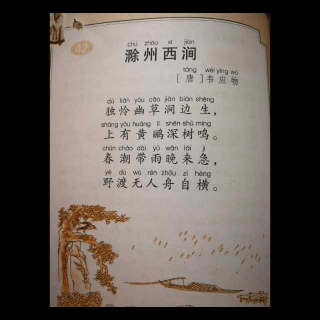 42
chú zhōu xī jiàn
滁州西涧
táng wéi yìng wù
［唐］韦应物
dú lián yōu cǎo jiàn biān shēng
独怜幽草涧边生，
shàng yǒu huáng lí shēn shù míng
上有黄鹂深树鸣。
chūn cháo dài yǔ wǎn lái jí
春潮带雨晚来急，
yě dù wú rén zhōu zì héng
野渡无人舟自横。